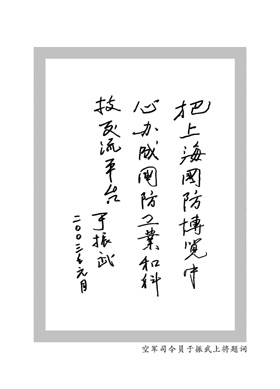 把上海國防博覽中
心办成國防工業和科
技交流平台 于振武
二〇〇三年元月
空军司令員于振武上将题词